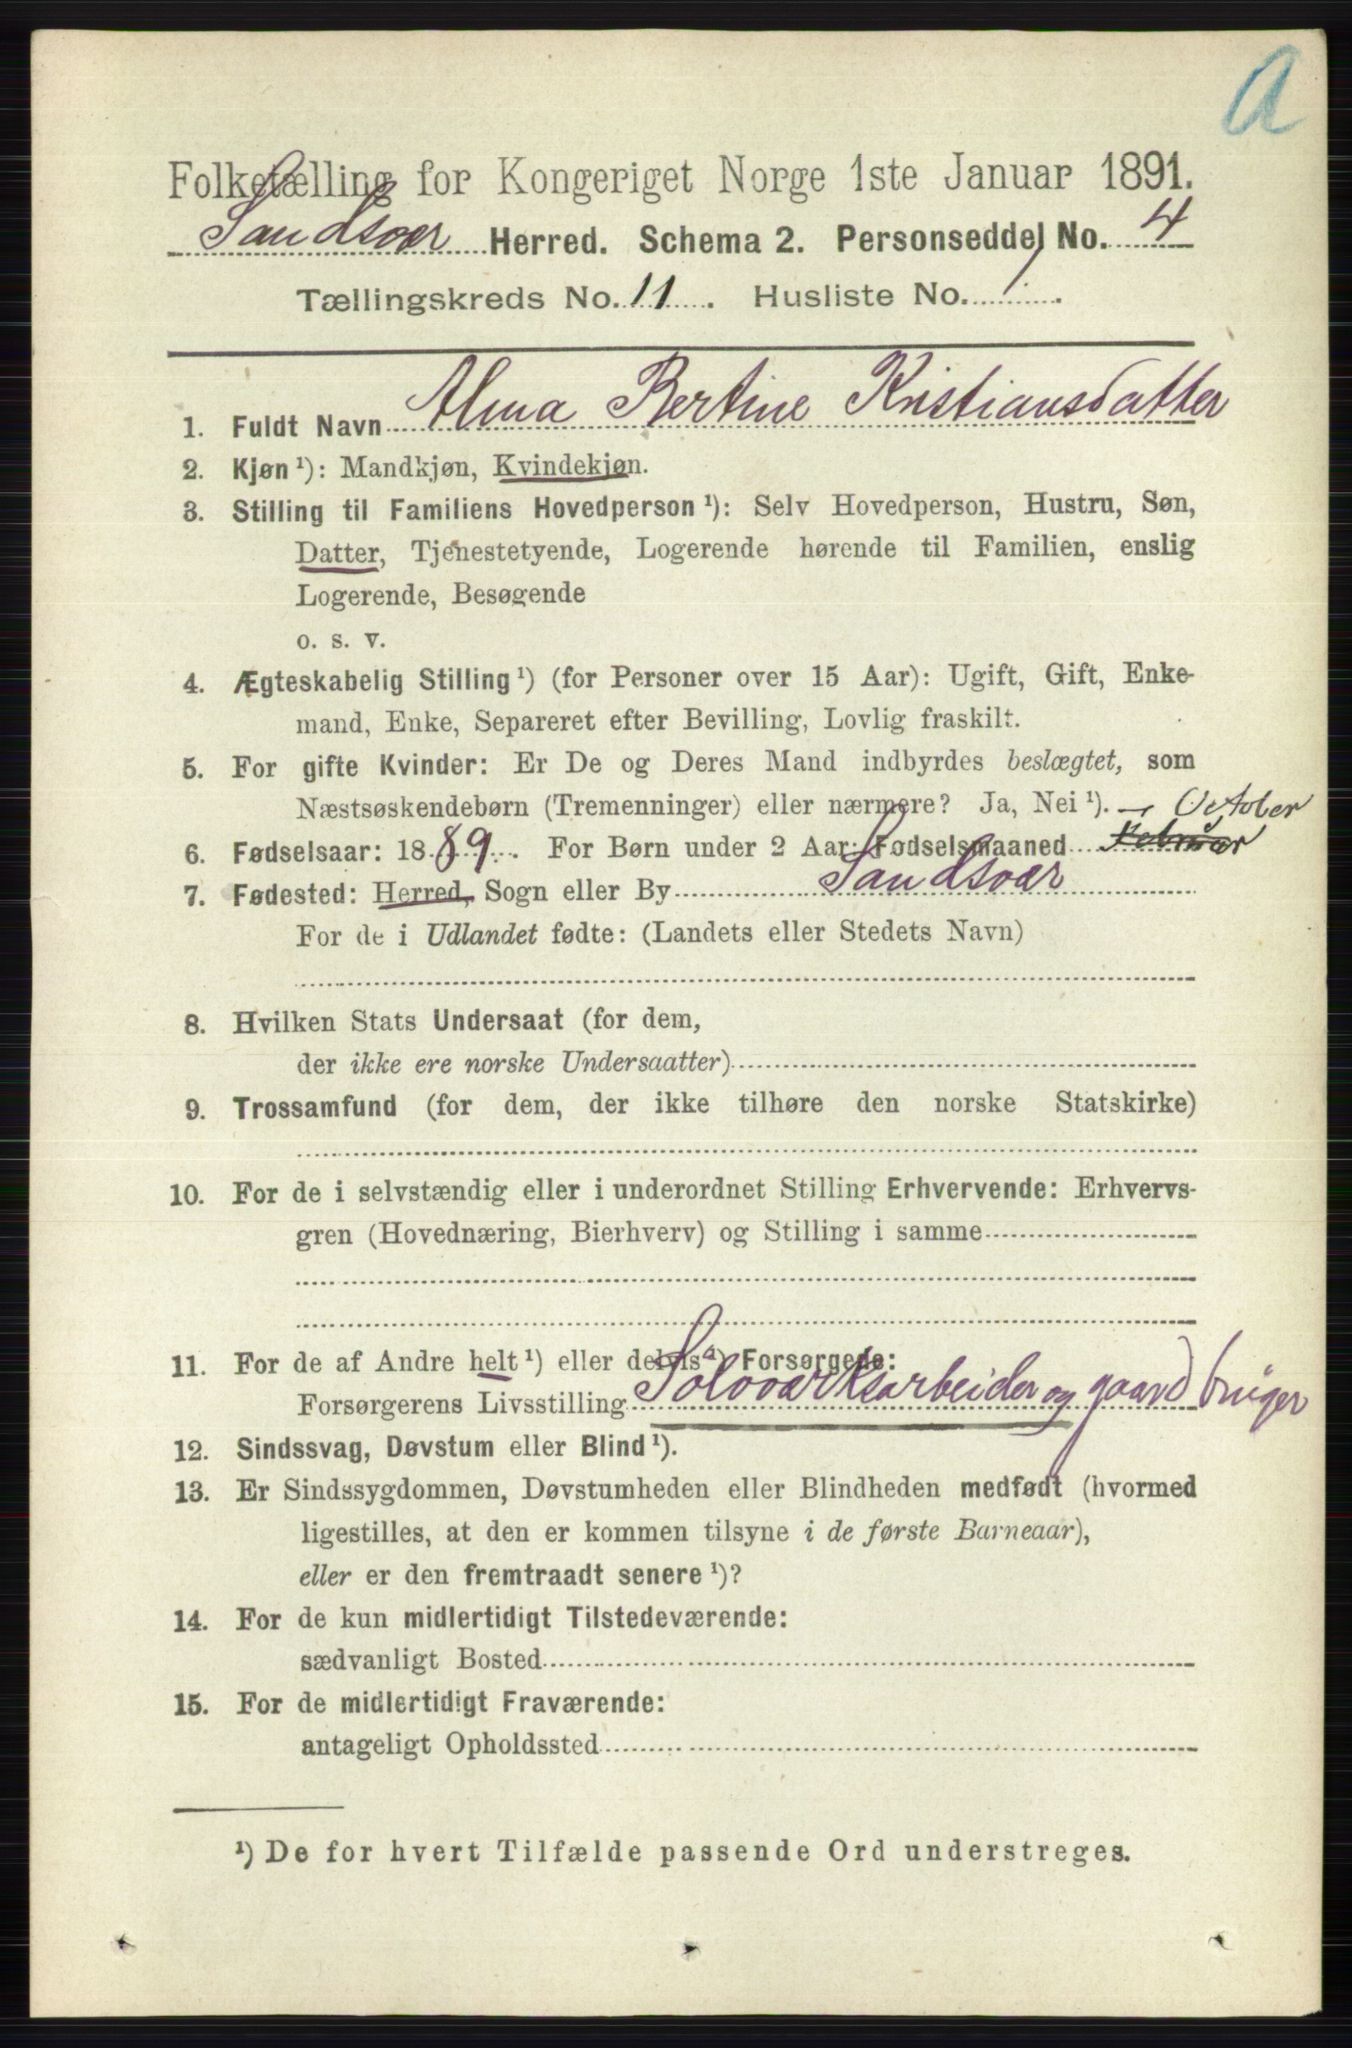 A
Folketælling for Kongeriget Norge 1ste Januar 1891.
Sandsvær Herred. Schema 2. Personseddel No. 4
Tællingskreds No. 11. Husliste No. 1.
1. Fuldt Navn Alma Bertine Kristiansdatter
2. Kjøn ¹): Mandkjøn, Kvindekjøn.
3. Stilling til Familiens Hovedperson ¹): Selv Hovedperson, Hustru, Søn,
Datter, Tjenestetyende, Logerende hørende til Familien, enslig
Logerende, Besøgende
o. s. v.
4. Ægteskabelig Stilling ¹) (for Personer over 15 Aar): Ugift, Gift, Enke-
mand, Enke, Separeret efter Bevilling, Lovlig fraskilt.
5. For gifte Kvinder: Er De og Deres Mand indbyrdes beslægtet, som
Næstsøskendebørn (Tremenninger) eller nærmere? Ja, Nei ¹). — October
6. Fødselsaar: 1889. For Børn under 2 Aar: Fødselsmaaned Februar
7. Fødested: Herred, Sogn eller By Sandsvær
For de i Udlandet fødte: (Landets eller Stedets Navn)
8. Hvilken Stats Undersaat (for dem,
der ikke ere norske Undersaatter)
9. Trossamfund (for dem, der ikke tilhøre den norske Statskirke)
10. For de i selvstændig eller i underordnet Stilling Erhvervende: Erhvervs-
gren (Hovednæring, Bierhverv) og Stilling i samme
11. For de af Andre helt ¹) eller delvis ¹) Forsørgede:
Forsørgerens Livsstilling Sölvværksarbeider og gaardbruger
12. Sindssvag, Døvstum eller Blind ¹).
13. Er Sindssygdommen, Døvstumheden eller Blindheden medfødt (hvormed
ligestilles, at den er kommen tilsyne i de første Barneaar),
eller er den fremtraadt senere ¹)?
14. For de kun midlertidigt Tilstedeværende:
sædvanligt Bosted
15. For de midlertidigt Fraværende:
antageligt Opholdssted
¹) De for hvert Tilfælde passende Ord understreges.